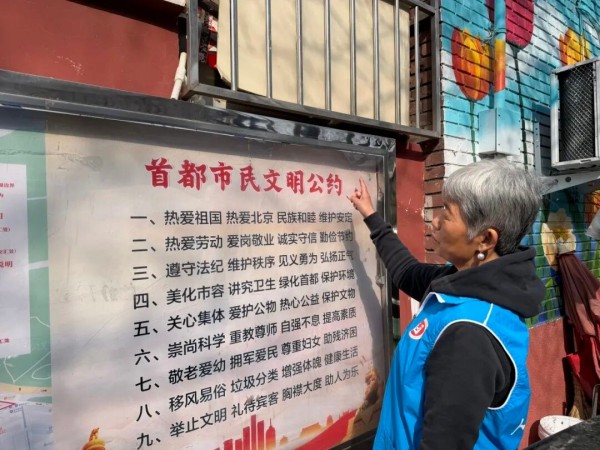 首都市民文明公约
一、热爱祖国 热爱北京 民族和睦 维护安定
二、热爱劳动 爱岗敬业 诚实守信 勤俭节约
三、遵守法纪 维护秩序 见义勇为 弘扬正气
四、美化市容 讲究卫生 绿化首都 保护环境
五、关心集体 爱护公物 热心公益 保护文物
六、崇尚科学 重教尊师 自强不息 提高素质
七、敬老爱幼 拥军爱民 尊重妇女 助残济困
八、移风易俗 垃圾分类 增强体魄 健康生活
九、举止文明 礼待宾客 胸襟大度 助人为乐
说明